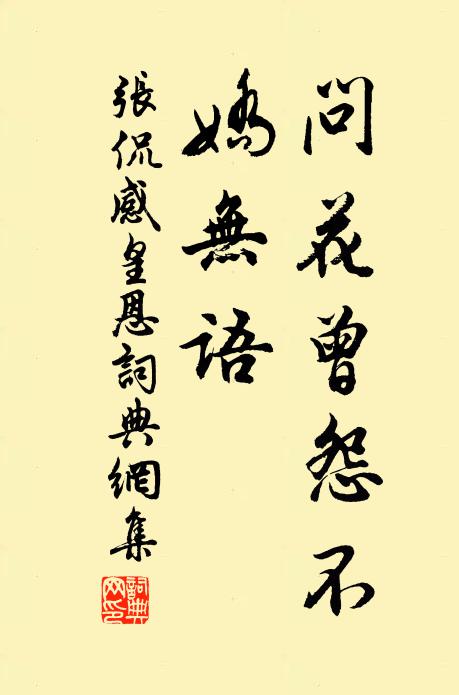 問花曾怨不
嬌無語
張侃感皇恩詞典網集
詞典網印